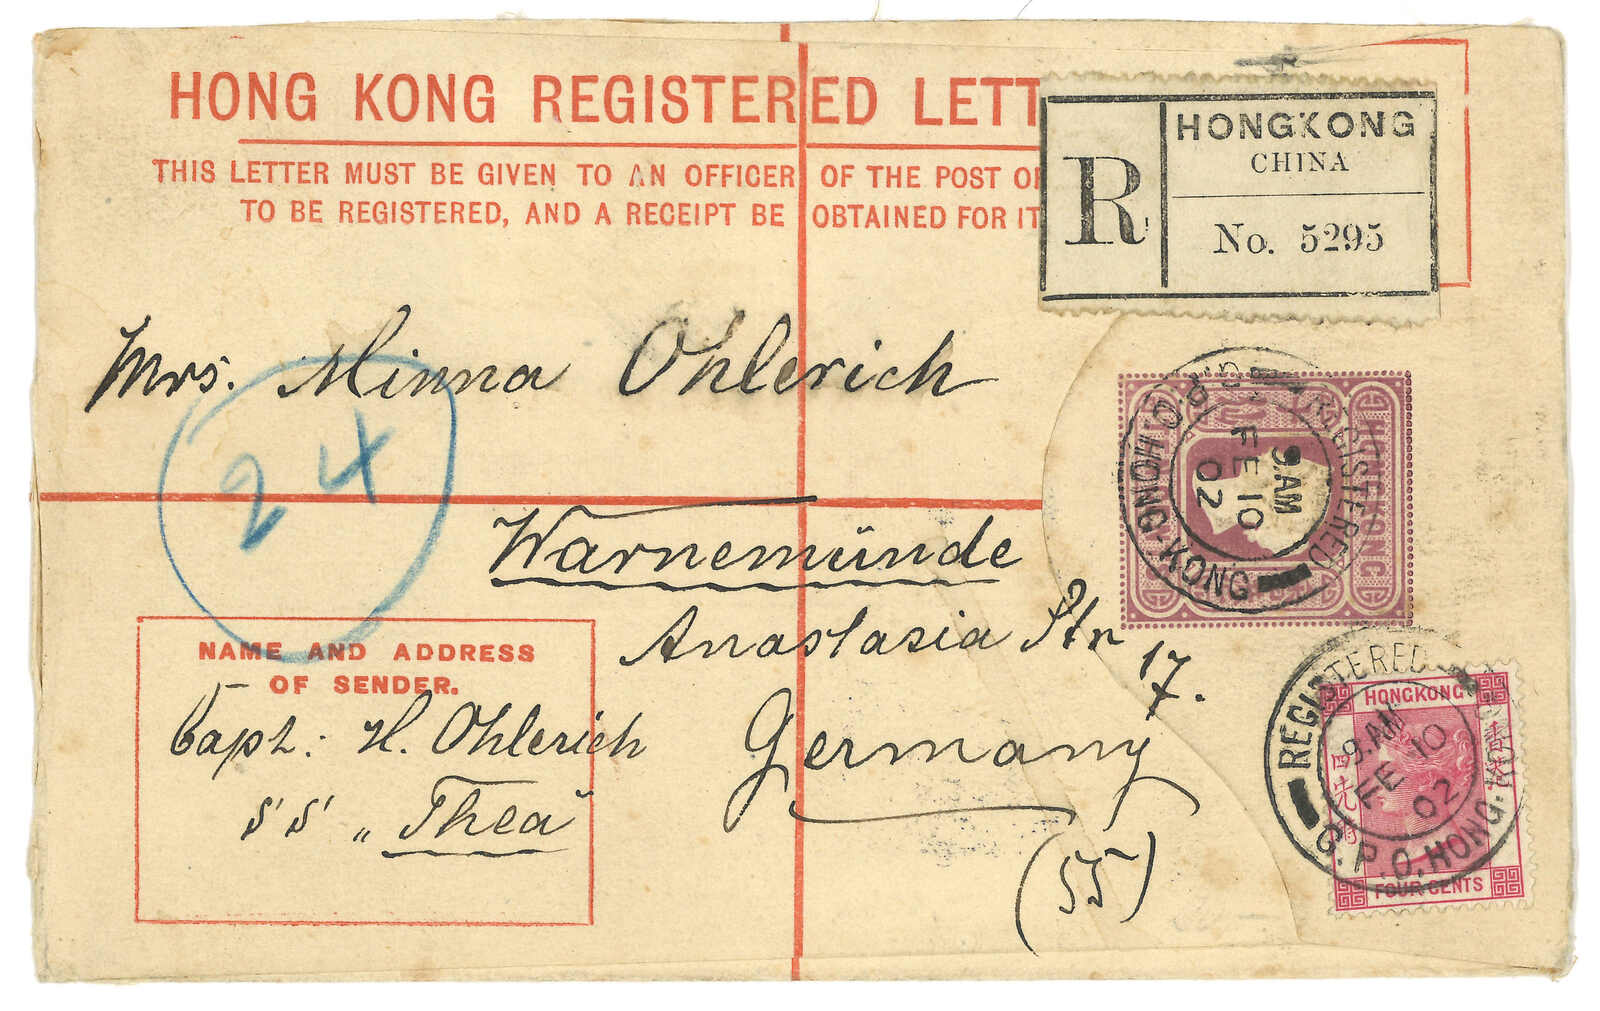 HONG KONG REGISTERED LETT
THIS LETTER MUST BE GIVEN TO AN OFFICER OF THE POST OF
TO BE REGISTERED, AND A RECEIPT BE OBTAINED FOR IT
R
HONGKONG
CHINA
No. 5295
Mrs. Minna Ohlerich
24
Warnemünde
Anastasia Str
17.
Germany
(55)
NAME AND ADDRESS
OF SENDER.
Capt: H. Ohlerich
S'S' „Thea"
HONGKONG
REGISTERED
G.P.O. HONG-KONG
9.AM
FE 10
02
HONGKONG
四先時
FOUR CENTS
REGISTERED
G.P.O. HONG-KONG
9.AM
FE 10
02